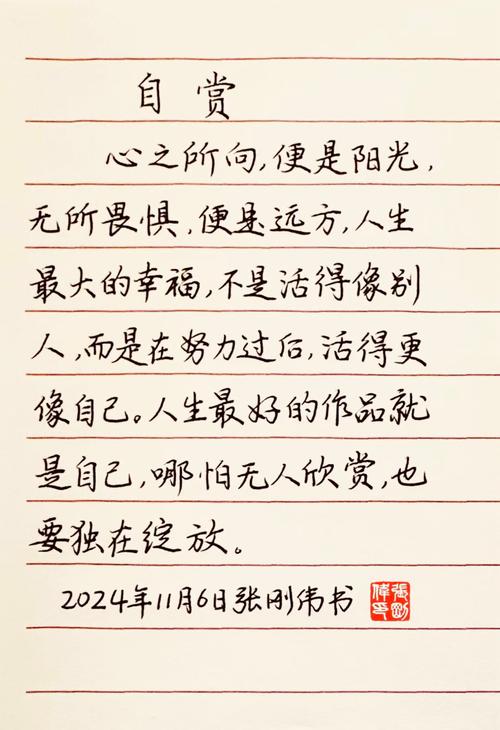 自赏
心之所向,便是阳光,
无所畏惧,便是远方,人生
最大的幸福,不是活得像别
人,而是在努力过后,活得更
像自己。人生最好的作品就
是自己,哪怕无人欣赏,也
要独在绽放。
2024年11月6日张刚伟书
張剛
偉印